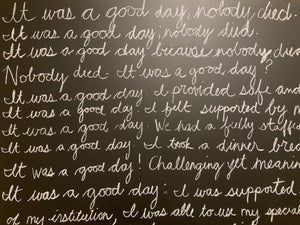 It was a good day, nobody died.
It was a good day; nobody died.
It was a good day because nobody died
Nobody died. It was a good day?
It was a good day. I provided safe and
It was a good day. I felt supported by m
It was a good day. We had a fully staffed
It was a good day. I took a dinner brea
It was a good day! Challenging yet meanin
It was a good day: I was supported
of my institution, I was able to use my special